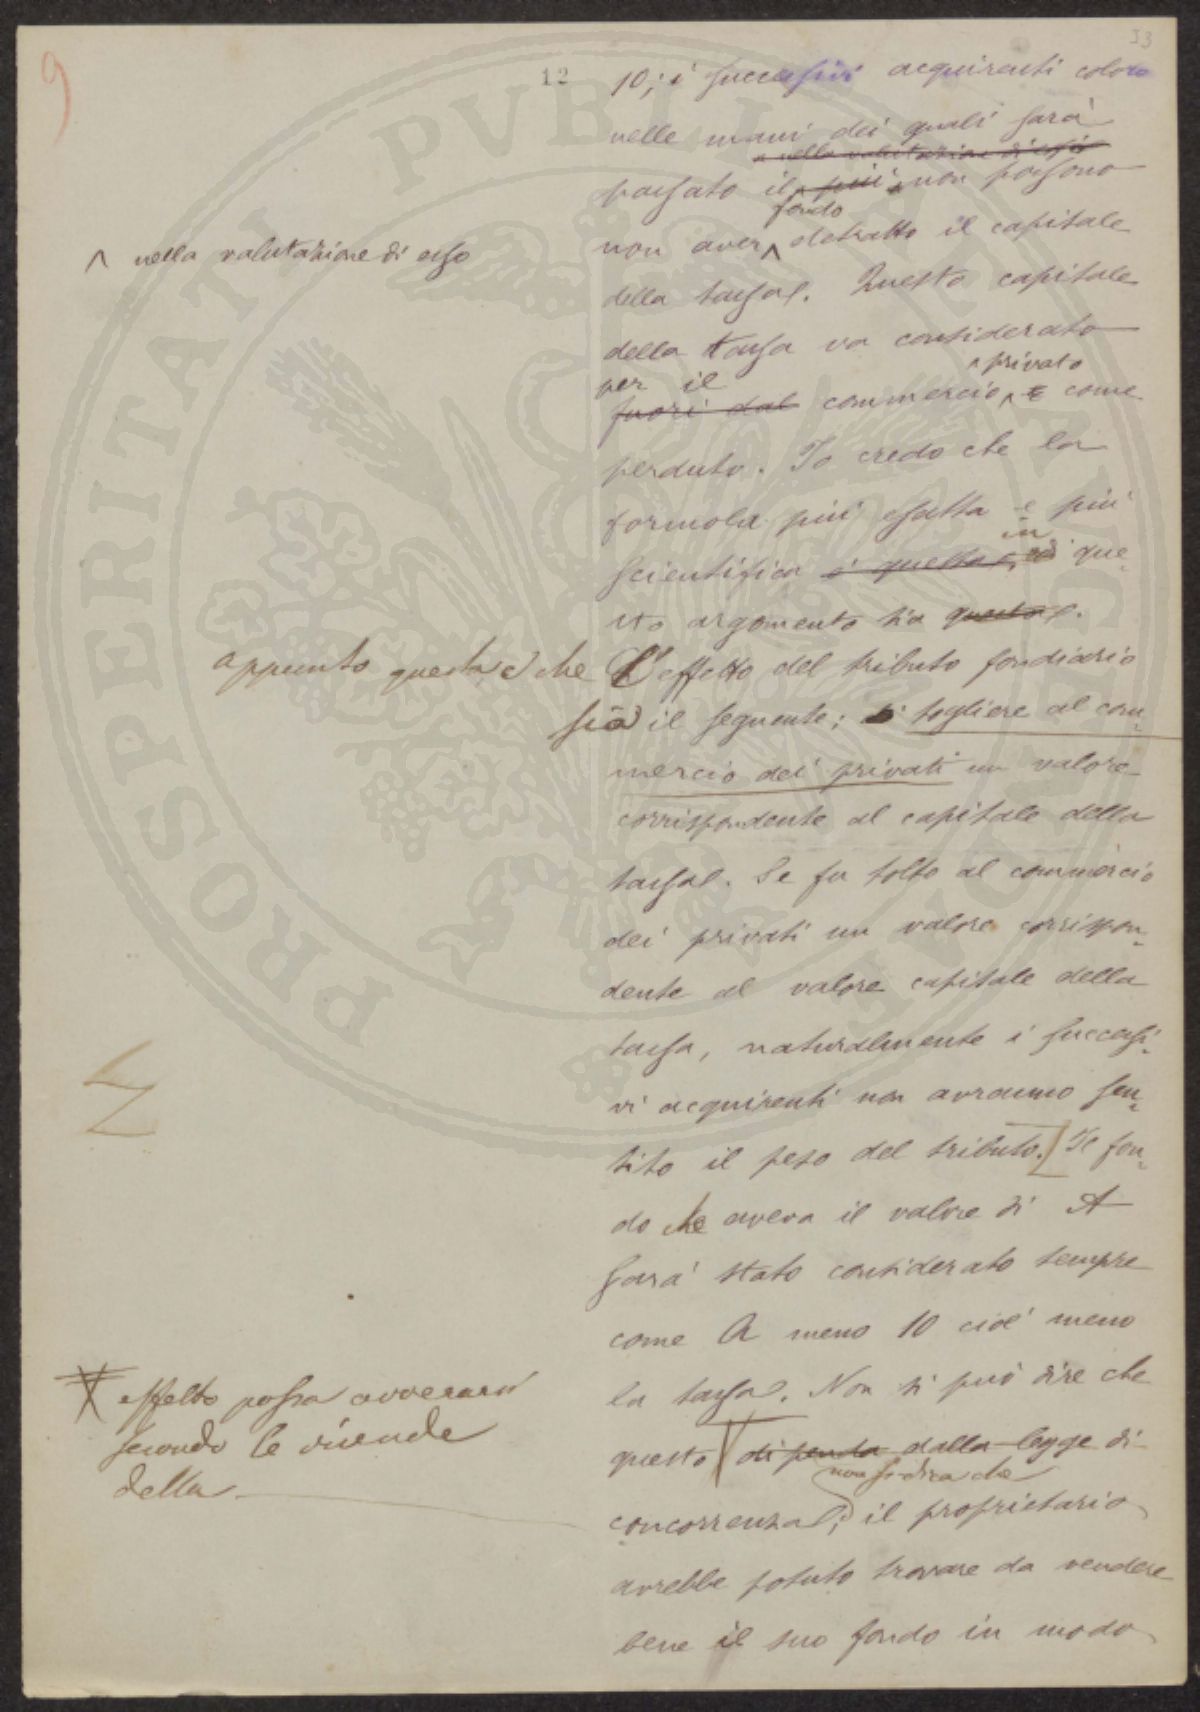 9
12
53
10; i successivi acquirenti coloro
nelle mani dei quali sarà
e nella valutazione di esso
passato il più non possono
fondo
non aver detratto il capitale
nella valutazione di esso
della tassa. Questo capitale
della tassa va considerato
per il privato
fuori dal commercio, e come
perduto. Io credo che la
formola più esatta e più
in
scientifica è quella, di que-
sto argomento sia questa.
appunto questa è che L'effetto del tributo fondiario
sia il seguente; di togliere al com-
mercio dei privati un valore
corrispondente al capitale della
tassa. Se fu tolto al commercio
dei privati un valore corrispon-
dente al valore capitale della
tassa, naturalmente i successi-
vi acquirenti non avranno sen-
tito il peso del tributo. Il fon-
do che aveva il valore di A
sarà stato considerato sempre
come A meno 10 cioè meno
la tassa. Non si può dire che
effetto possa avverarsi
secondo le vicende
della
questo dipenda dalla legge di
non si dica che
concorrenza; il proprietario
avrebbe potuto trovare da vendere
bene il suo fondo in modo
PROSPERITATI PVBLICAE